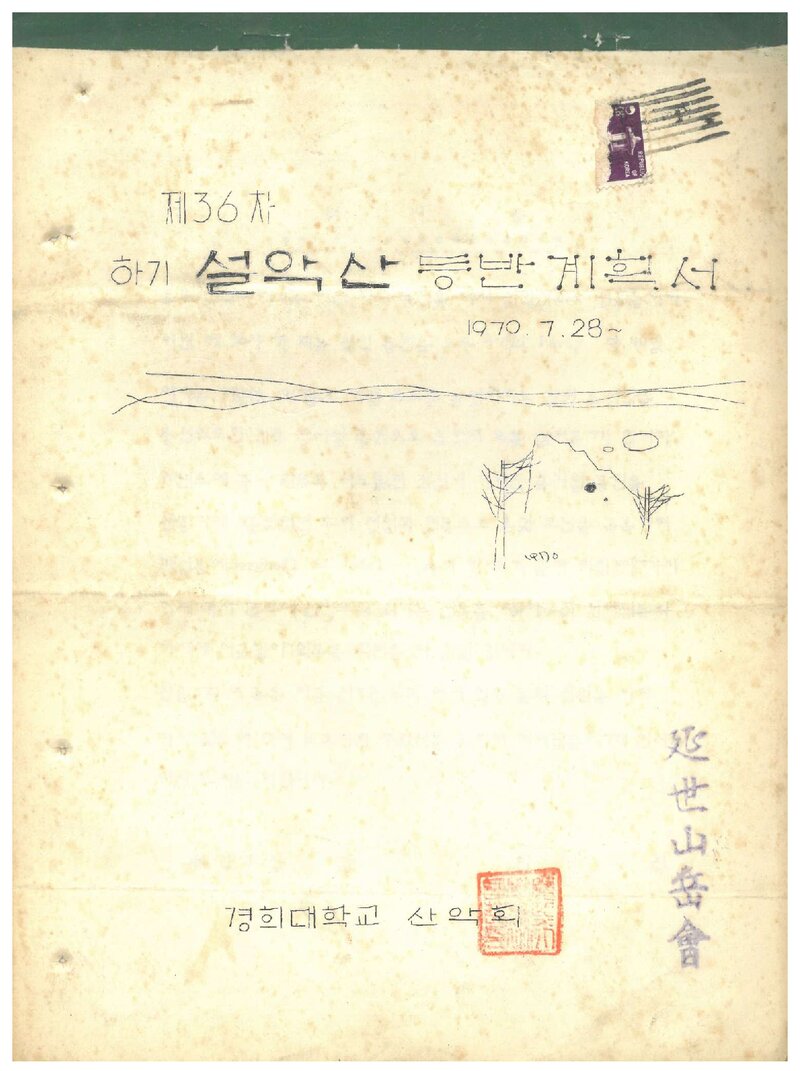 REPUBLIC
OF
KOREA
제36차
하기 설악산 등반계획서
1970. 7. 28~
1970
延世山岳會
경희대학교 산악회